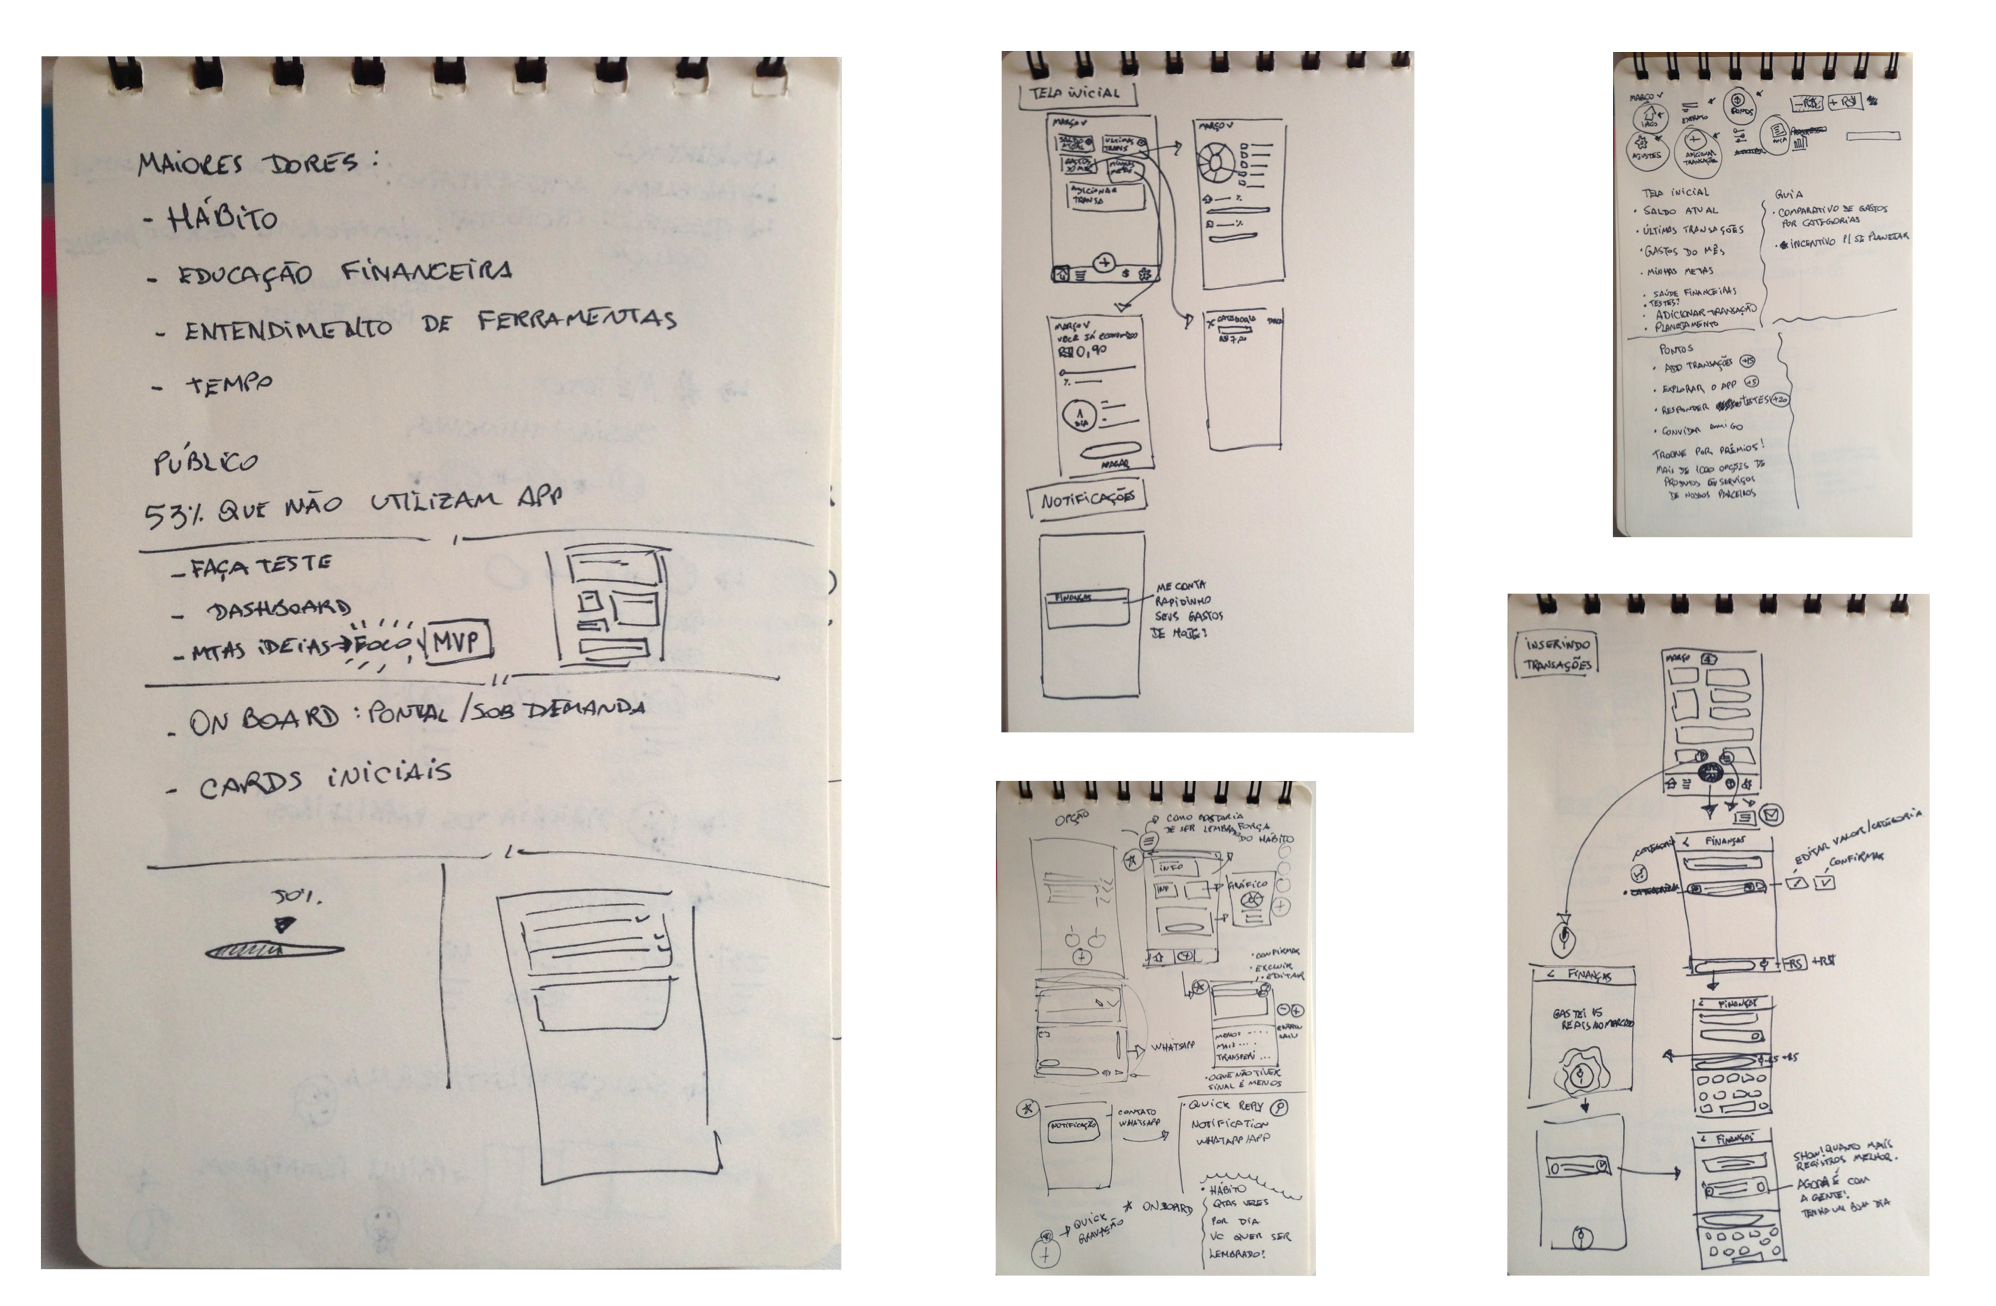 MAIORES DORES:
- HÁBITO
- EDUCAÇÃO FINANCEIRA
- ENTENDIMENTO DE FERRAMENTAS
- TEMPO
PÚBLICO
53% QUE NÃO UTILIZAM APP
- FAÇA TESTE
- DASHBOARD
- MTAS IDEIAS → FOCO MVP
- ON BOARD: PONTAL / SOB DEMANDA
- CARDS INICIAIS
50%
TELA INICIAL
MARÇO
SALDO ATUAL
ÚLTIMAS TRANS
GASTOS DO MÊS
MINHAS METAS
ADICIONAR TRANSA
MARÇO
%
%
MARÇO
VOCÊ JÁ ECONOMIZOU
R$ 0,90
%
1 DIA
CATEGORIA
NOTIFICAÇÕES
FINANÇAS
ME CONTA
RAPIDINHO
SEUS GASTOS
DE HOJE?
MARÇO
EXTRATO
PONTOS
-R$
+R$
AJUSTES
ADICIONAR TRANSAÇÃO
TELA INICIAL
• SALDO ATUAL
• ÚLTIMAS TRANSAÇÕES
• GASTOS DO MÊS
• MINHAS METAS
• SAÚDE FINANCEIRAS
• TESTES?
• ADICIONAR TRANSAÇÃO
• PLANEJAMENTO
GUIA
• COMPARATIVO DE GASTOS
POR CATEGORIAS
• INCENTIVO P/ SE PLANEJAR
PONTOS
• ADD TRANSAÇÕES +15
• EXPLORAR O APP +5
• RESPONDER TESTES +20
• CONVIDAR AMIGO
TROQUE POR PRÊMIOS!
MAIS DE 1000 OPÇÕES DE
PRODUTOS E SERVIÇOS
DE NOSSOS PARCEIROS
OPÇÃO
COMO GOSTARIA
DE SER LEMBRADO
FORÇA
DO HÁBITO
INFO
INF
GRÁFICO
• CONFIRMAR
• EXCLUIR
• EDITAR
WHATSAPP
MENOS ....
MAIS ....
TRANSFERI ...
• O QUE NÃO TIVER
SINAL É MENOS
NOTIFICAÇÃO
CONTATO
WHATSAPP
• QUICK REPLY
NOTIFICATION
WHATAPP/APP
* ONBOARD
→ QUICK
GRAVAÇÃO
• HÁBITO
QTAS VEZES
POR DIA
VC QUER SER
LEMBRADO?
INSERINDO
TRANSAÇÕES
MARÇO
< FINANÇAS
CATEGORIA
EDITAR VALOR/CATEGORIA
CONFIRMAR
-R$ +R$
< FINANÇAS
GASTEI 15
REAIS NO MERCADO
< FINANÇAS
< FINANÇAS
SHOW! QUANTO MAIS
REGISTROS MELHOR.
AGORA É
COM
A GENTE!
TENHA UM BOM DIA